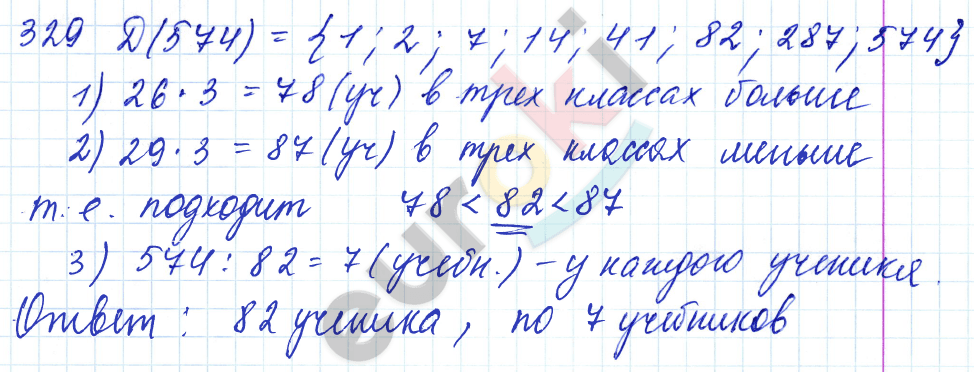 329 Д(574) = {1; 2; 7; 14; 41; 82; 287; 574}
1) 26 · 3 = 78 (уч) в трех классах больше
2) 29 · 3 = 87 (уч) в трех классах меньше
т.е. подходит 78 < 82 < 87
3) 574 : 82 = 7 (учебн.) – у каждого ученика.
Ответ: 82 ученика, по 7 учебников
euroki